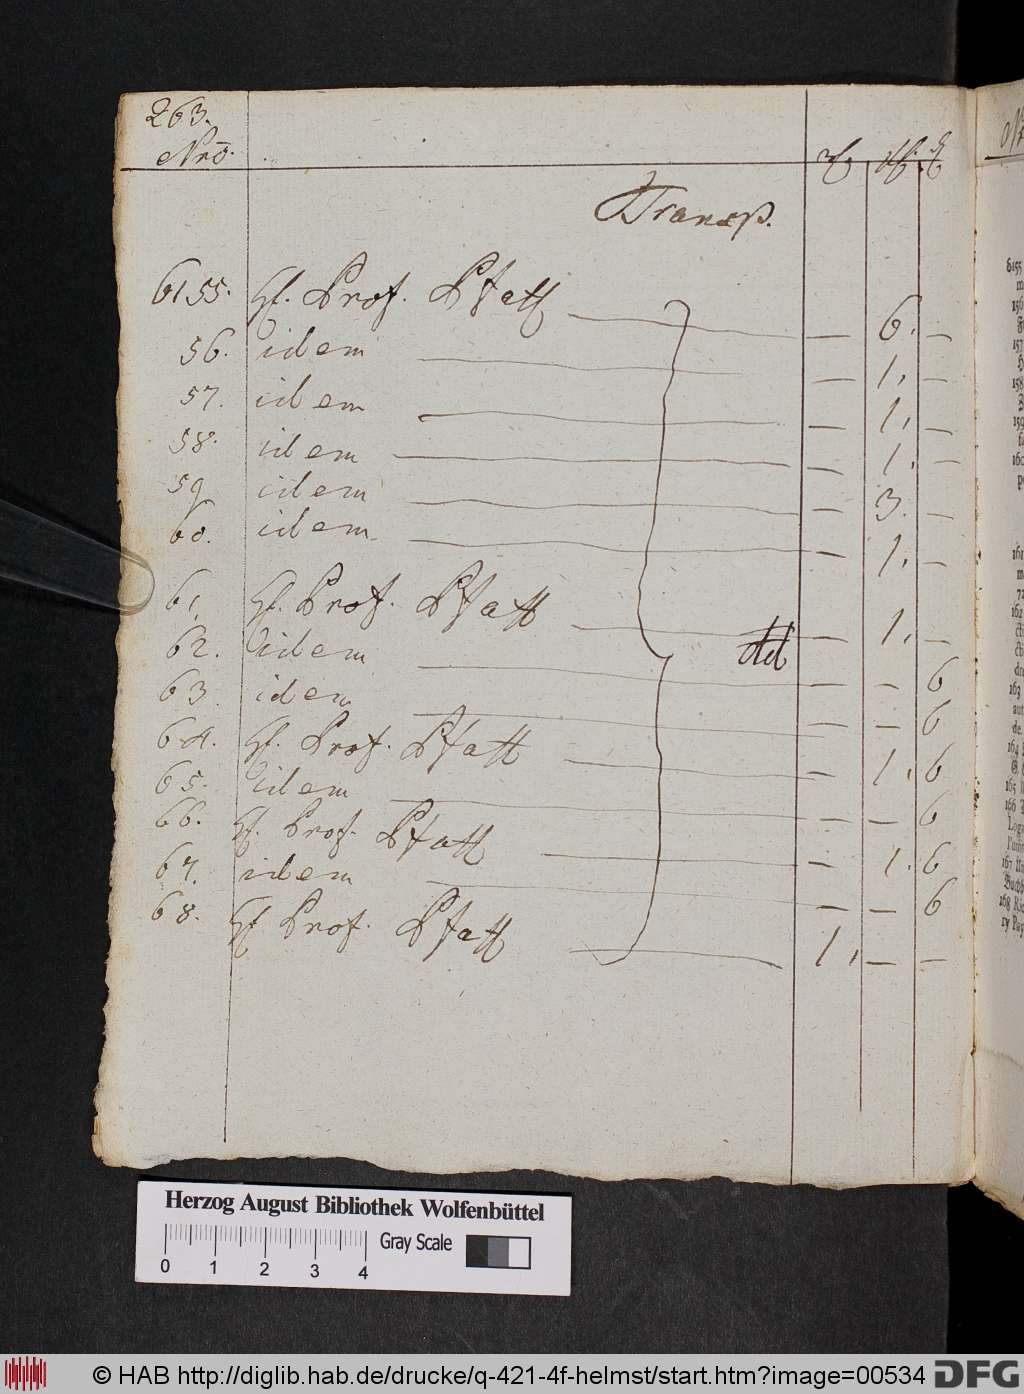 263.
Nro.
Transp.
6155. H. Prof. Pfaff — 6. —
56. idem — 1. —
57. idem — 1. —
58. idem — 1. —
59 idem — 3. —
60. idem — 1. —
61 H. Prof. Pfaff — 1. —
62. idem — — 6
63 idem — — 6
64. H. Prof. Pfaff — 1. 6
65. idem — — 6
66. H. Prof. Pfaff — 1. 6
67. idem — — 6
68. H. Prof. Pfaff 1. — —
Herzog August Bibliothek Wolfenbüttel
Gray Scale
0 1 2 3 4
© HAB http://diglib.hab.de/drucke/q-421-4f-helmst/start.htm?image=00534
DFG